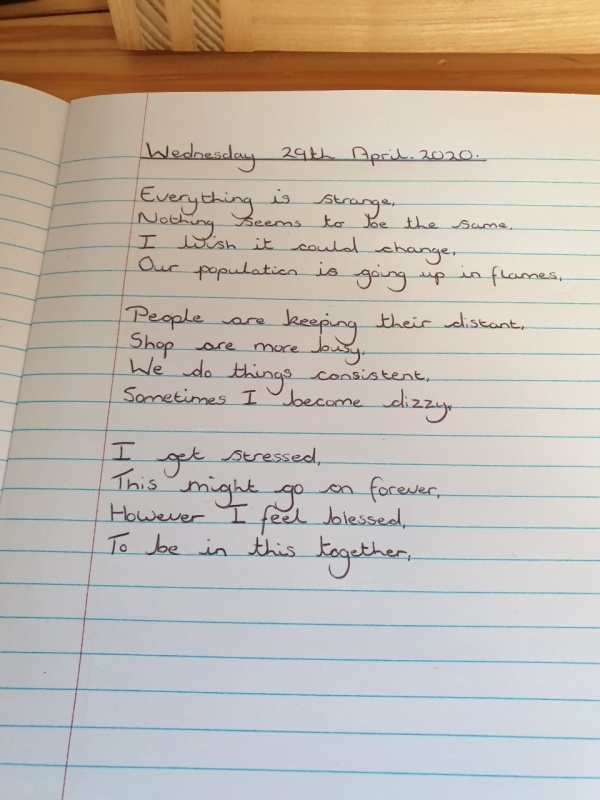 Wednesday 29th April. 2020.
Everything is strange,
Nothing seems to be the same.
I wish it could change,
Our population is going up in flames,
People are keeping their distant,
Shop are more busy.
We do things consistent,
Sometimes I become dizzy.
I get stressed,
This might go on forever,
However I feel blessed,
To be in this together,